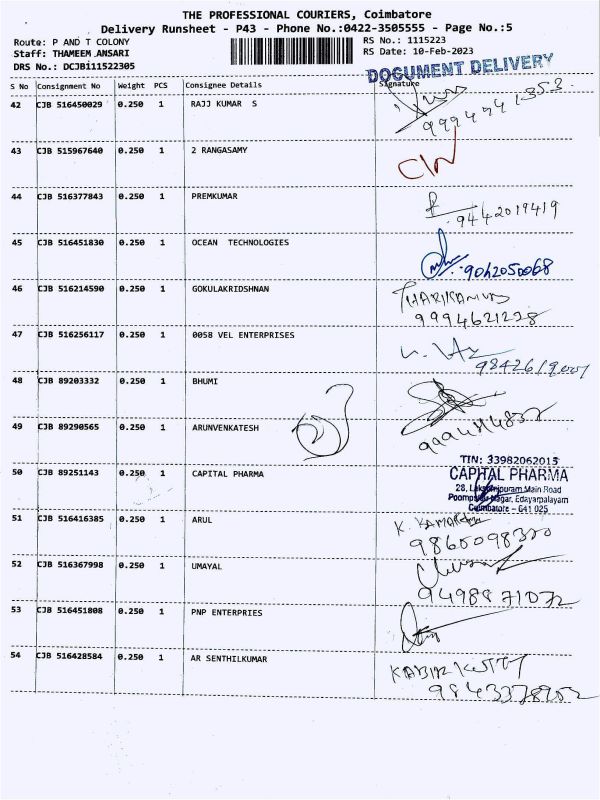 THE PROFESSIONAL COURIERS, Coimbatore
Delivery Runsheet - P43 - Phone No.:0422-3505555 - Page No.:5
Route: P AND T COLONY
RS No.: 1115223
Staff: THAMEEM ANSARI
RS Date: 10-Feb-2023
DRS No.: DCJBi11522305
DOCUMENT DELIVERY
S No Consignment No Weight PCS Consignee Details Signature
42 CJB 516450029 0.250 1 RAJJ KUMAR S
43 CJB 515967640 0.250 1 2 RANGASAMY
44 CJB 516377843 0.250 1 PREMKUMAR
9442019419
45 CJB 516451830 0.250 1 OCEAN TECHNOLOGIES
46 CJB 516214590 0.250 1 GOKULAKRIDSHNAN
9994621228
47 CJB 516256117 0.250 1 0058 VEL ENTERPRISES
48 CJB 89203332 0.250 1 BHUMI
49 CJB 89290565 0.250 1 ARUNVENKATESH
TIN: 33982062015
50 CJB 89251143 0.250 1 CAPITAL PHARMA
CAPITAL PHARMA
28, Main Road
Nagar, Edayarpalayam
Coimbatore - 641 025
51 CJB 516416385 0.250 1 ARUL
52 CJB 516367998 0.250 1 UMAYAL
9498871072
53 CJB 516451808 0.250 1 PNP ENTERPRIES
54 CJB 516428584 0.250 1 AR SENTHILKUMAR